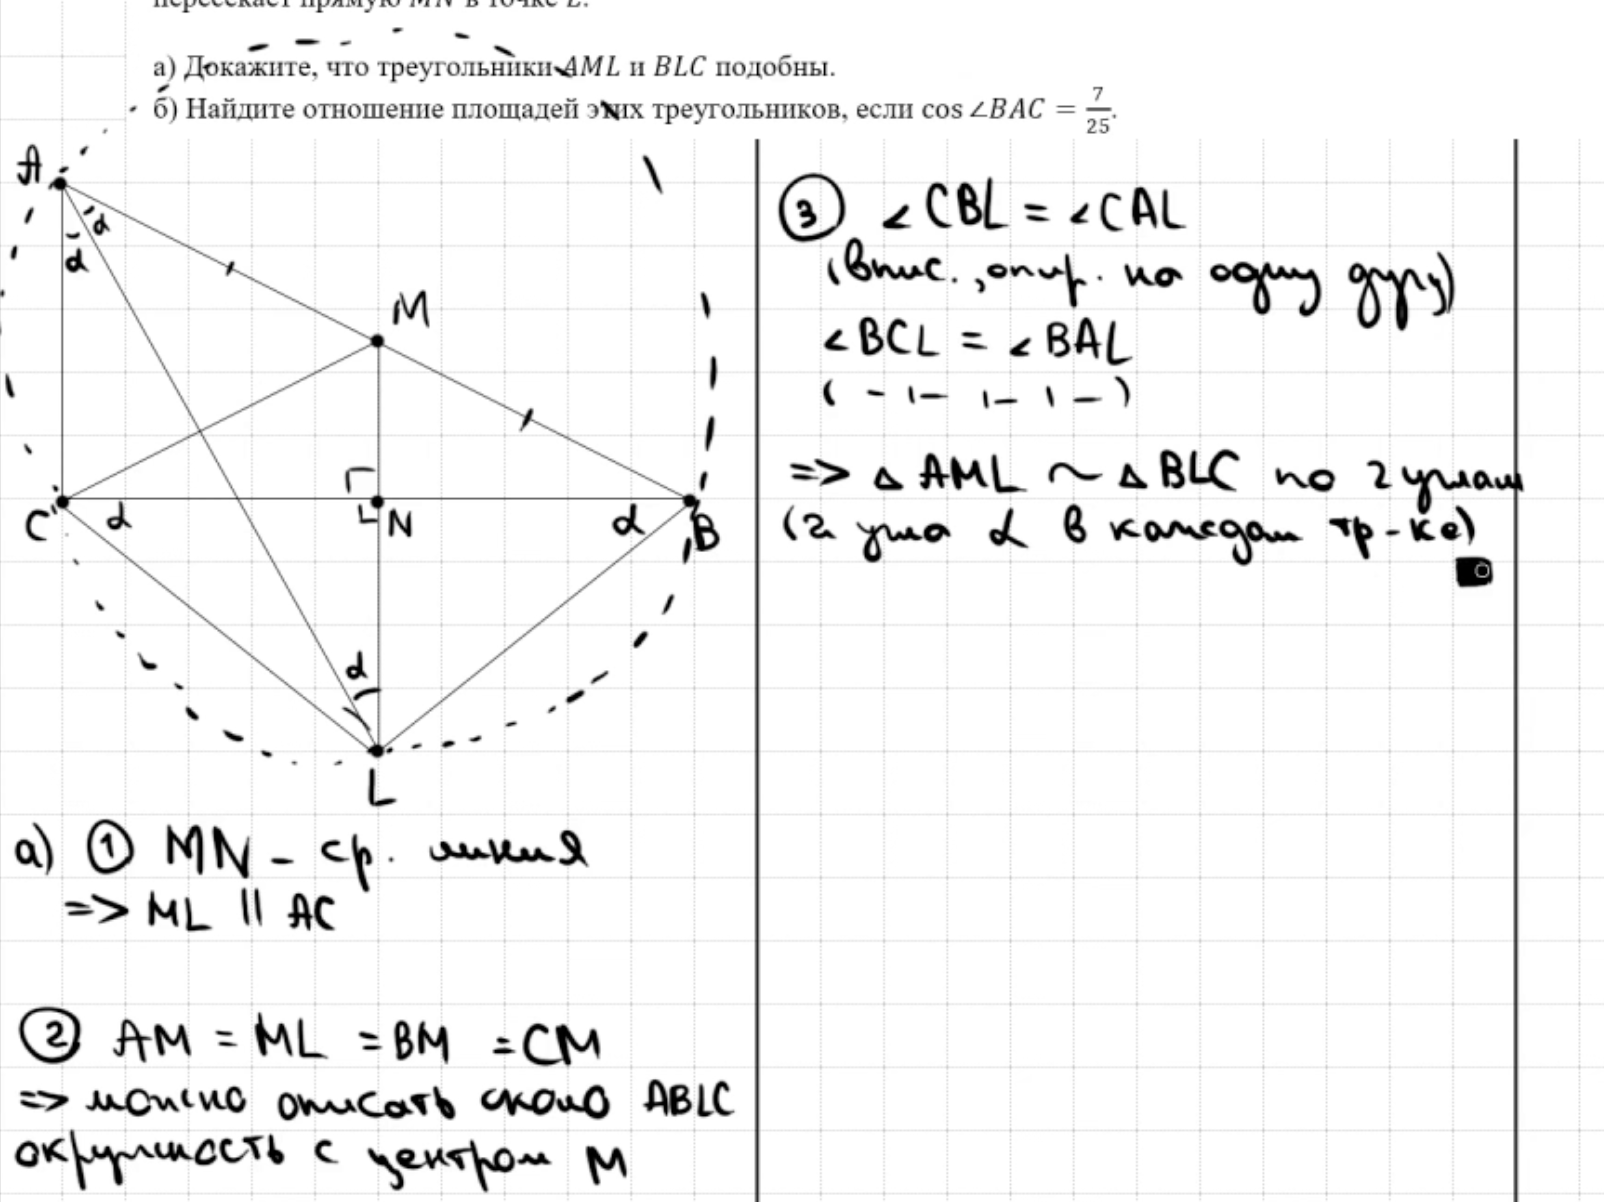 пересекает прямую MN в точке L.
а) Докажите, что треугольники AML и BLC подобны.
б) Найдите отношение площадей этих треугольников, если cos ∠BAC = 7/25.
A
α
α
M
C
α
N
α
B
α
L
а) ① MN - ср. линия
=> ML || AC
② AM = ML = BM = CM
=> можно описать около ABLC
окружность с центром M
③ ∠CBL = ∠CAL
(впис., опир. на одну дугу)
∠BCL = ∠BAL
( - ı - ı - ı - )
=> △ AML ~ △ BLC по 2 углам
(2 угла α в каждом тр-ке)